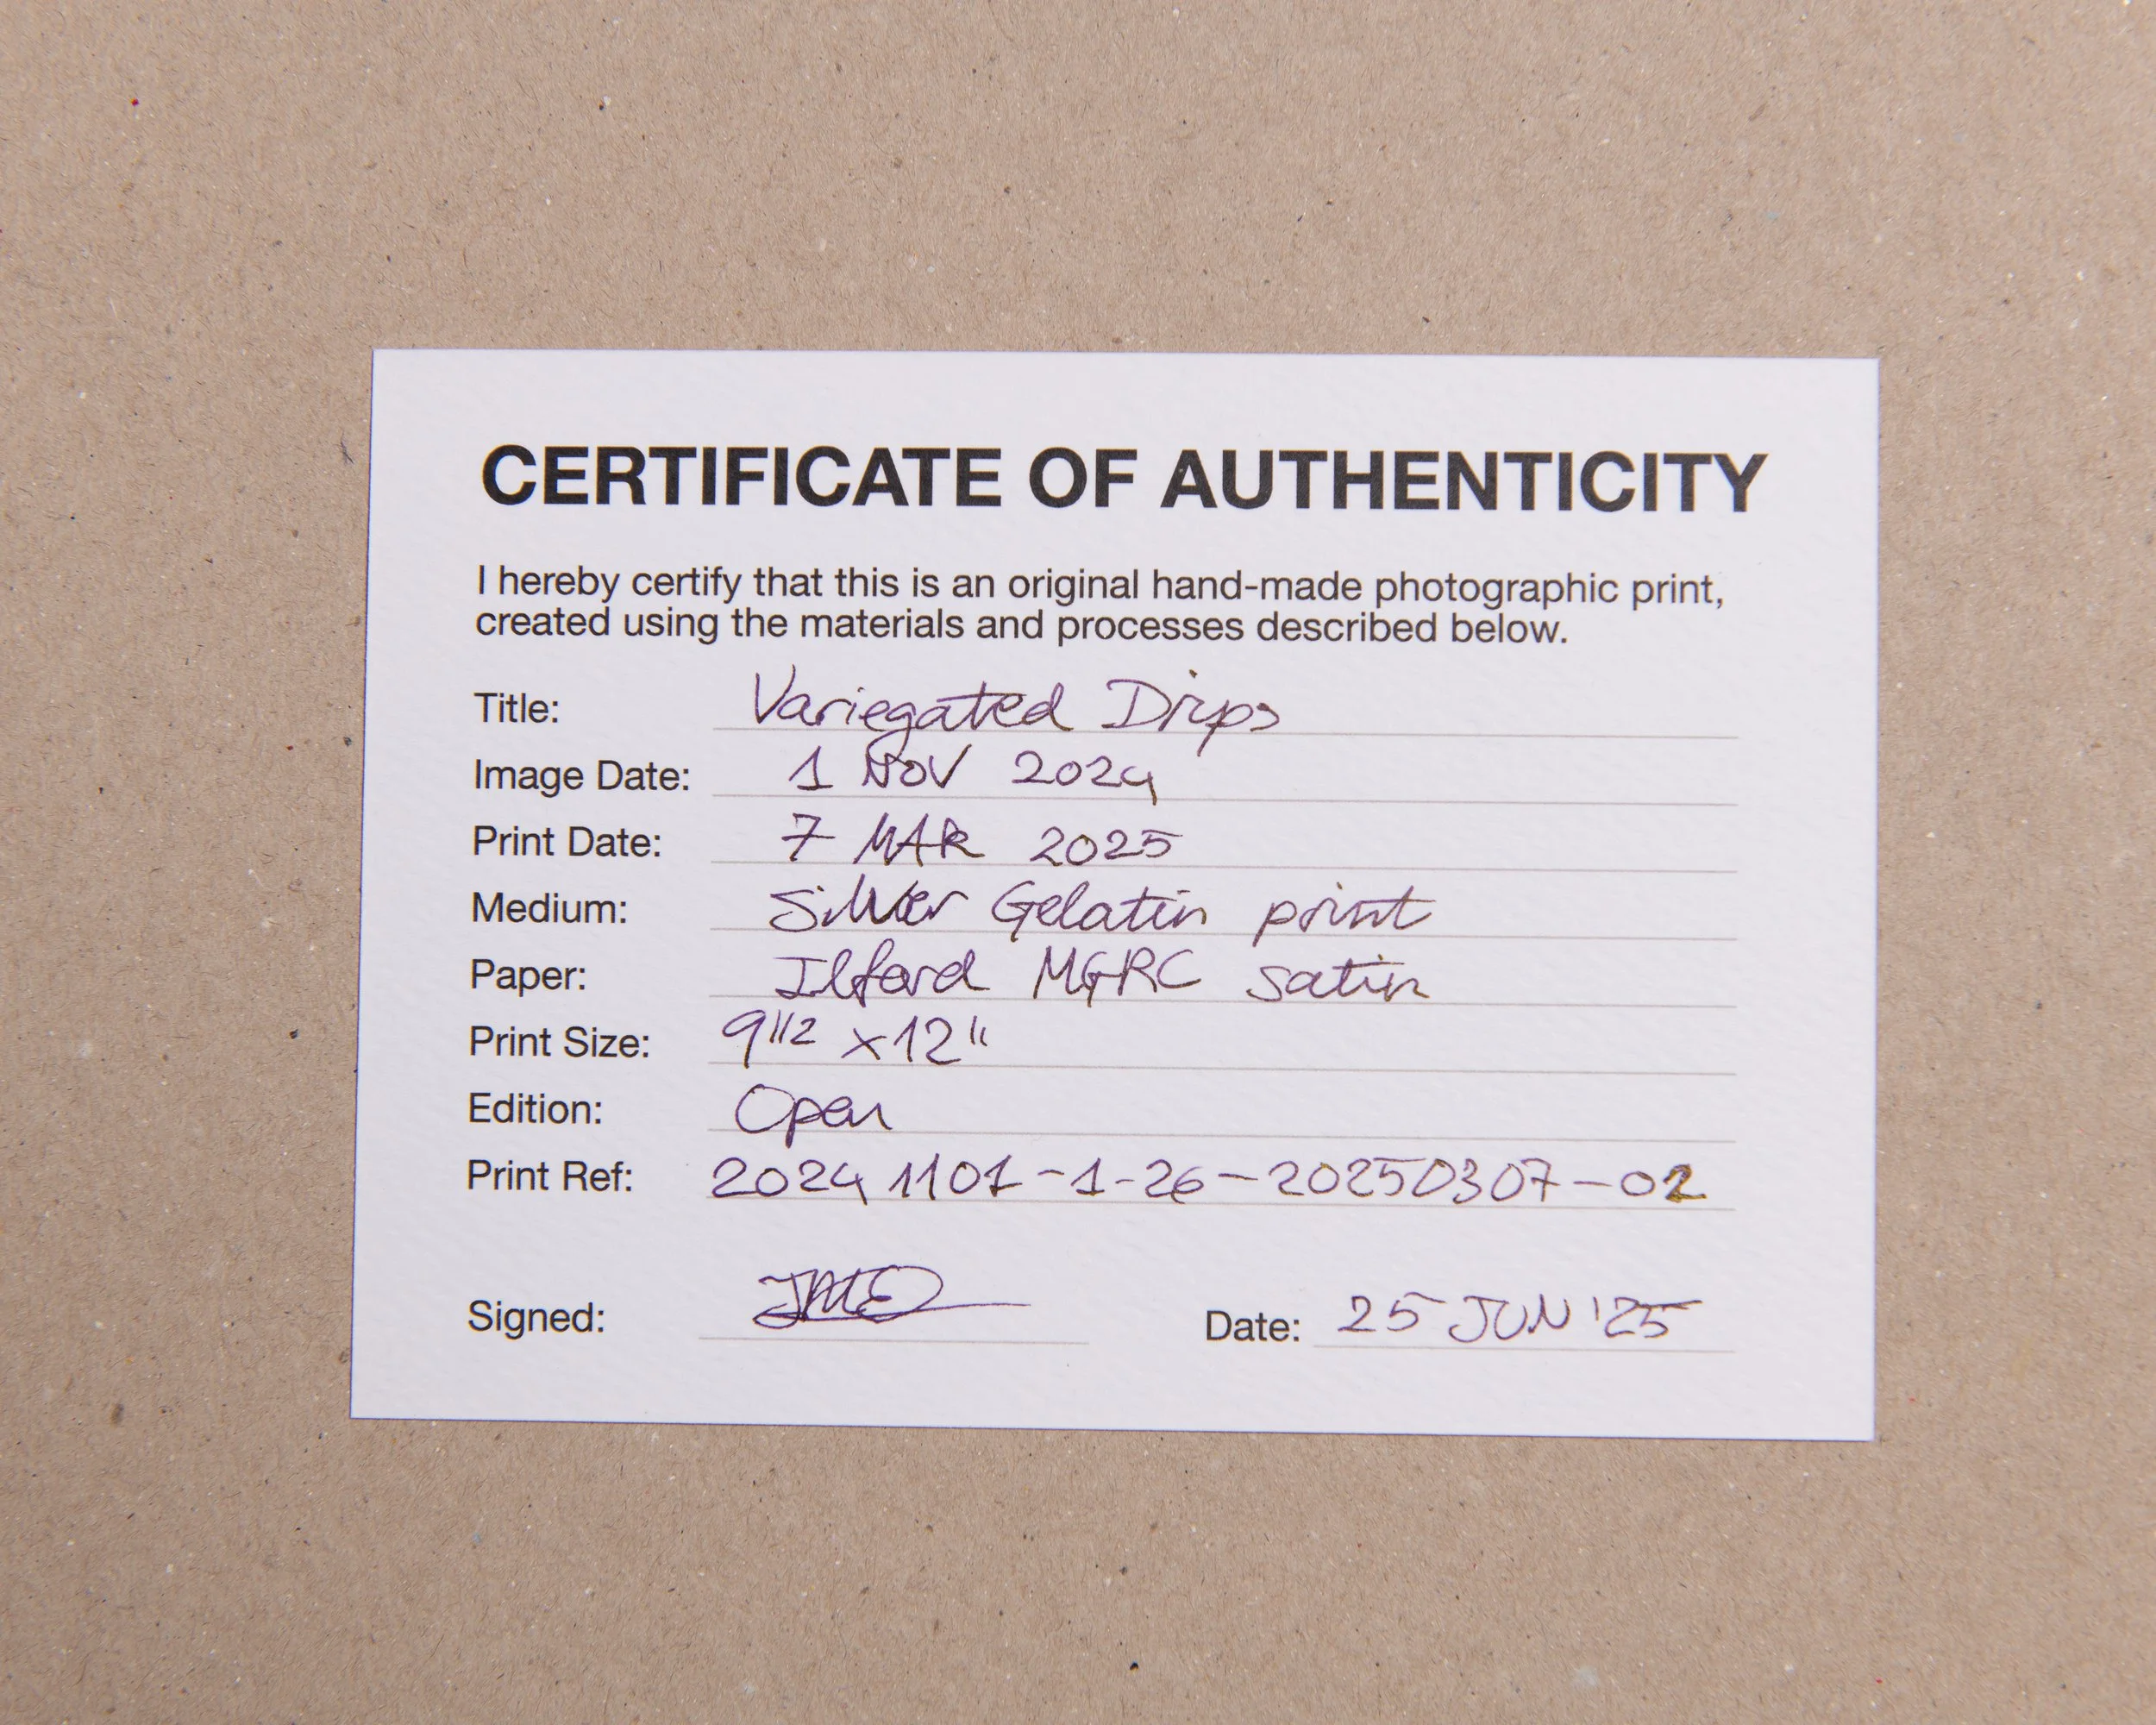 CERTIFICATE OF AUTHENTICITY
I hereby certify that this is an original hand-made photographic print,
created using the materials and processes described below.
Title: Variegated Drips
Image Date: 1 NOV 2024
Print Date: 7 MAR 2025
Medium: Silver Gelatin print
Paper: Ilford MGRC satin
Print Size: 9 1/2 x 12"
Edition: Open
Print Ref: 20241101-1-26-20250307-02
Signed: Date: 25 JUN '25